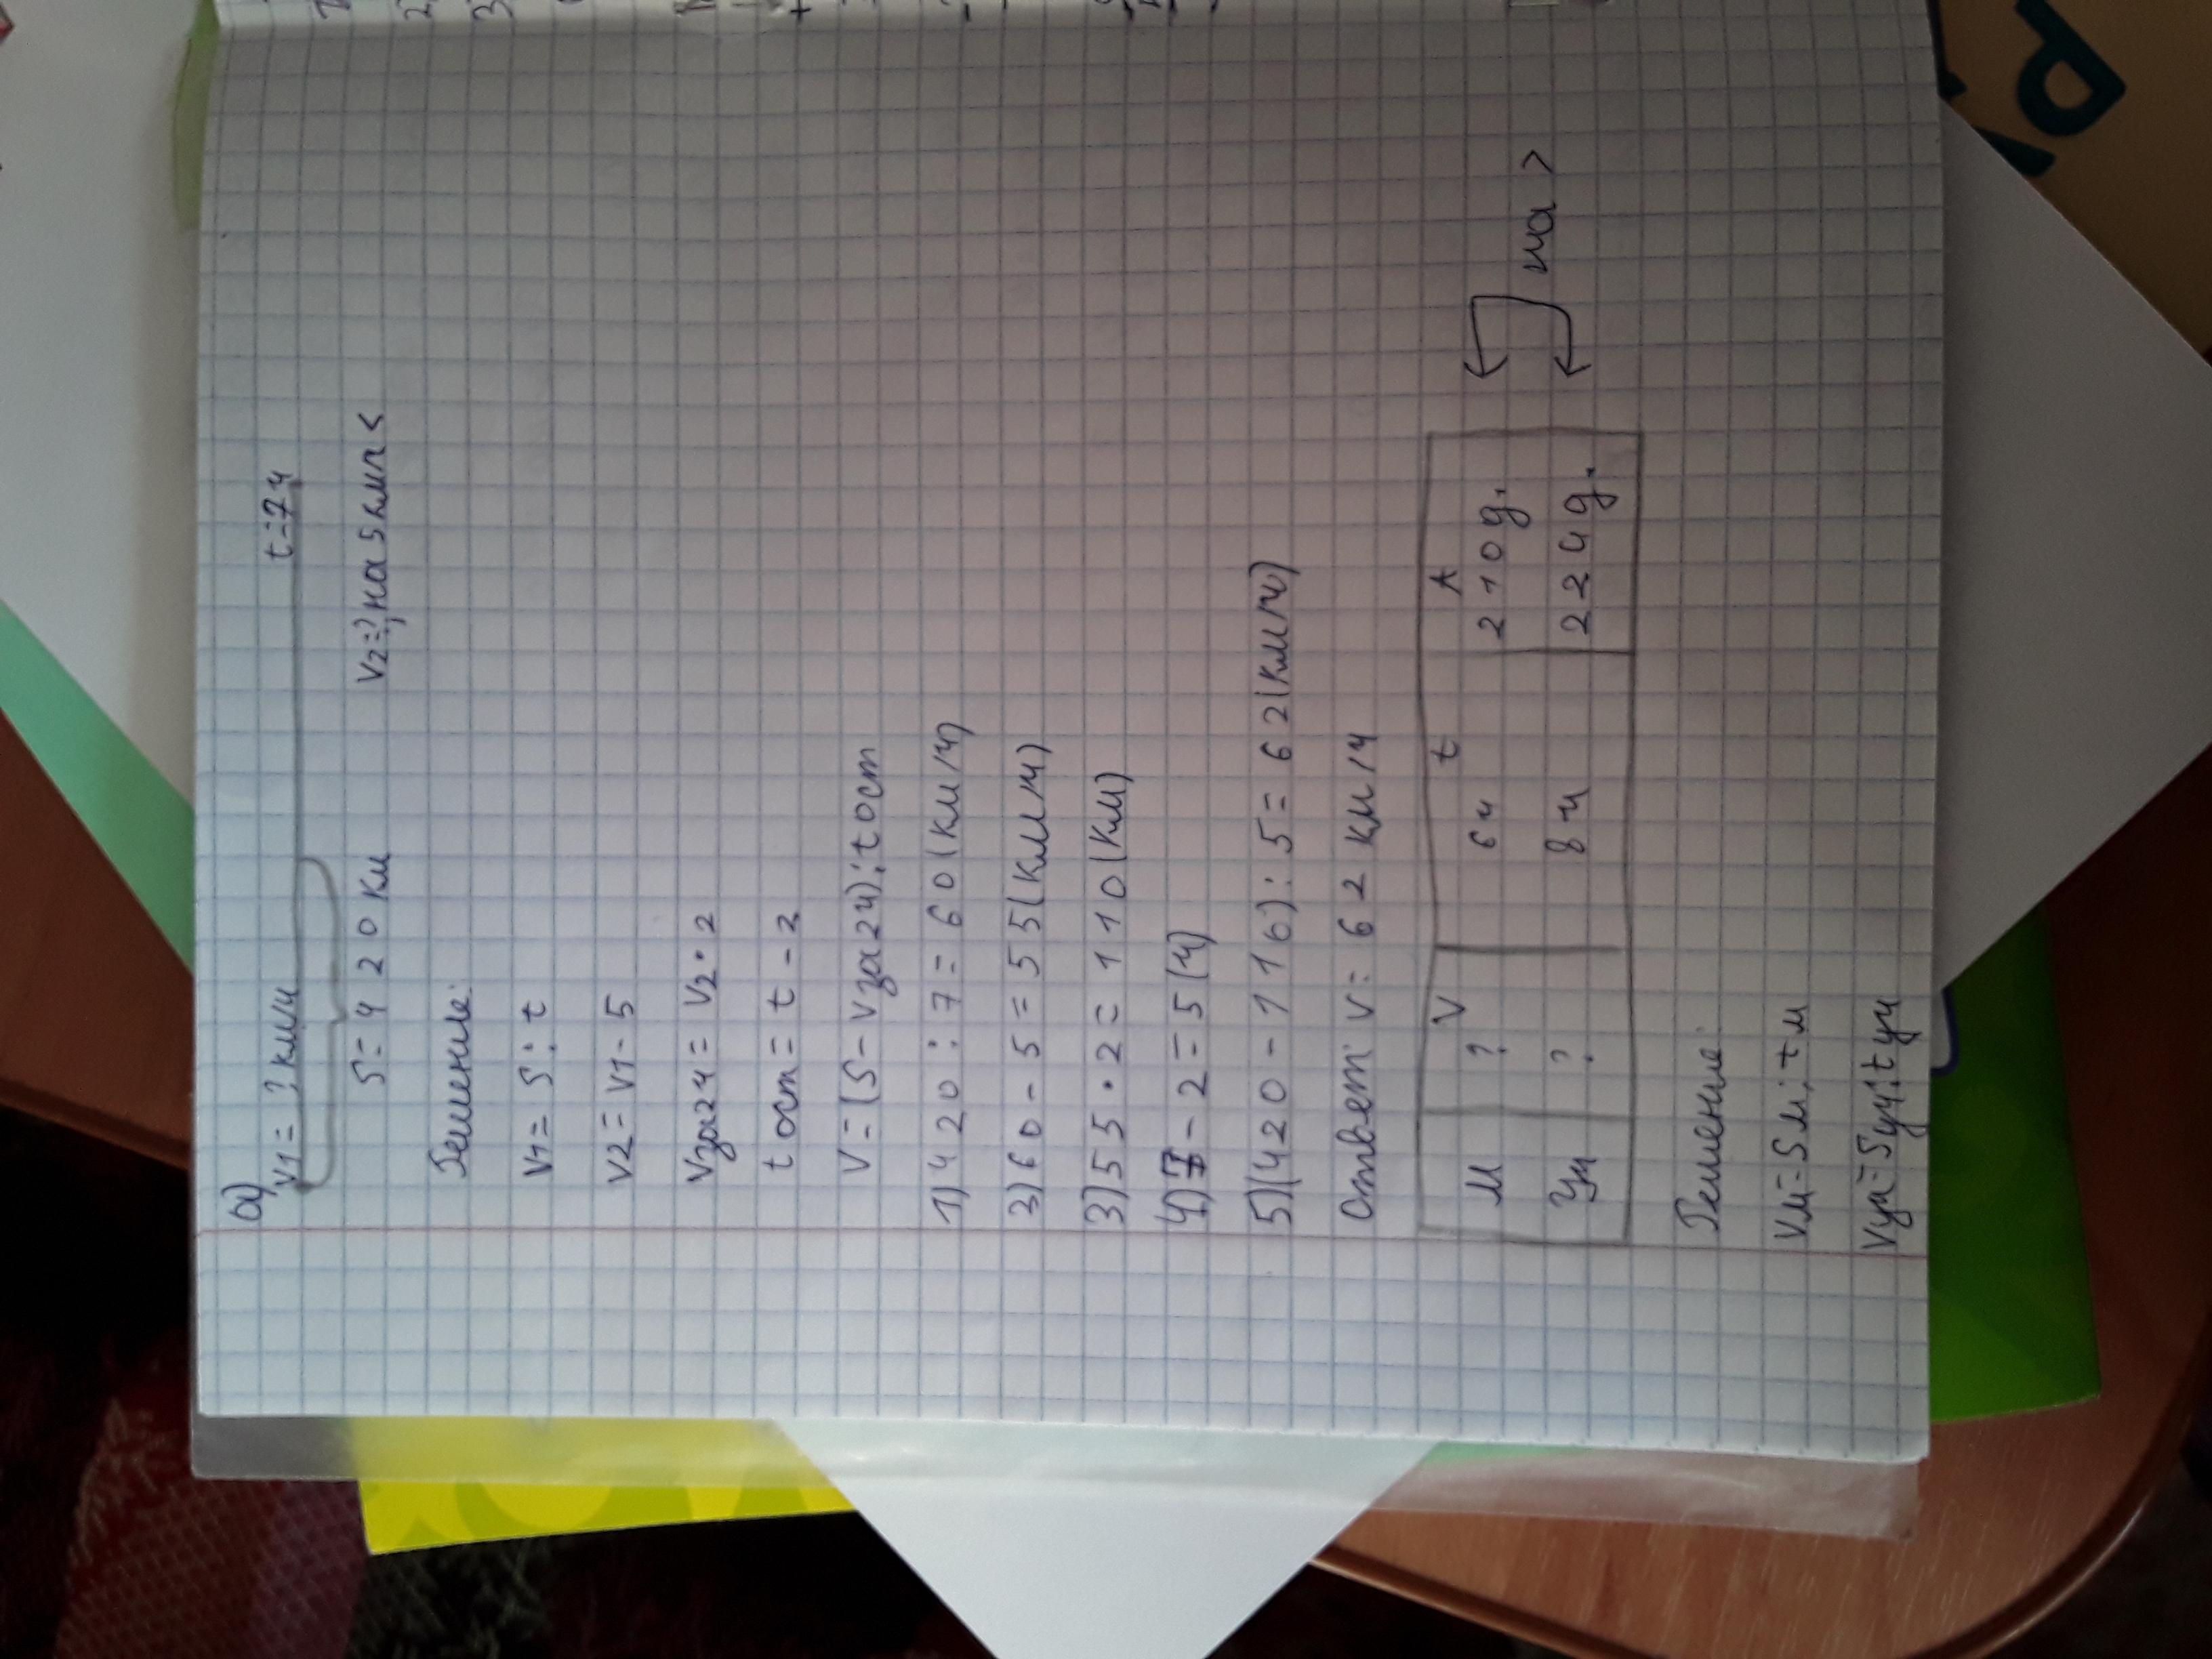 а)
V1= ? км/ч t=7ч
S= 420 км V2=?, на 5 км/ч <
Решение:
V1= S : t
V2= V1- 5
Vза2ч= V2 · 2
t ост= t - 2
V= (S- Vза2ч) : t ост
1) 420 : 7= 60 (км/ч)
2) 60 - 5= 55 (км/ч)
3) 55 · 2= 110 (км)
4) 7 - 2= 5 (ч)
5) (420 - 110) : 5= 62 (км/ч)
Ответ: V= 62 км/ч
V t A
М ? 6ч 210 д.
Уч ? 8ч 224 д.
на >
Решение:
Vм= Sм : t м
Vуч= Sуч : t уч